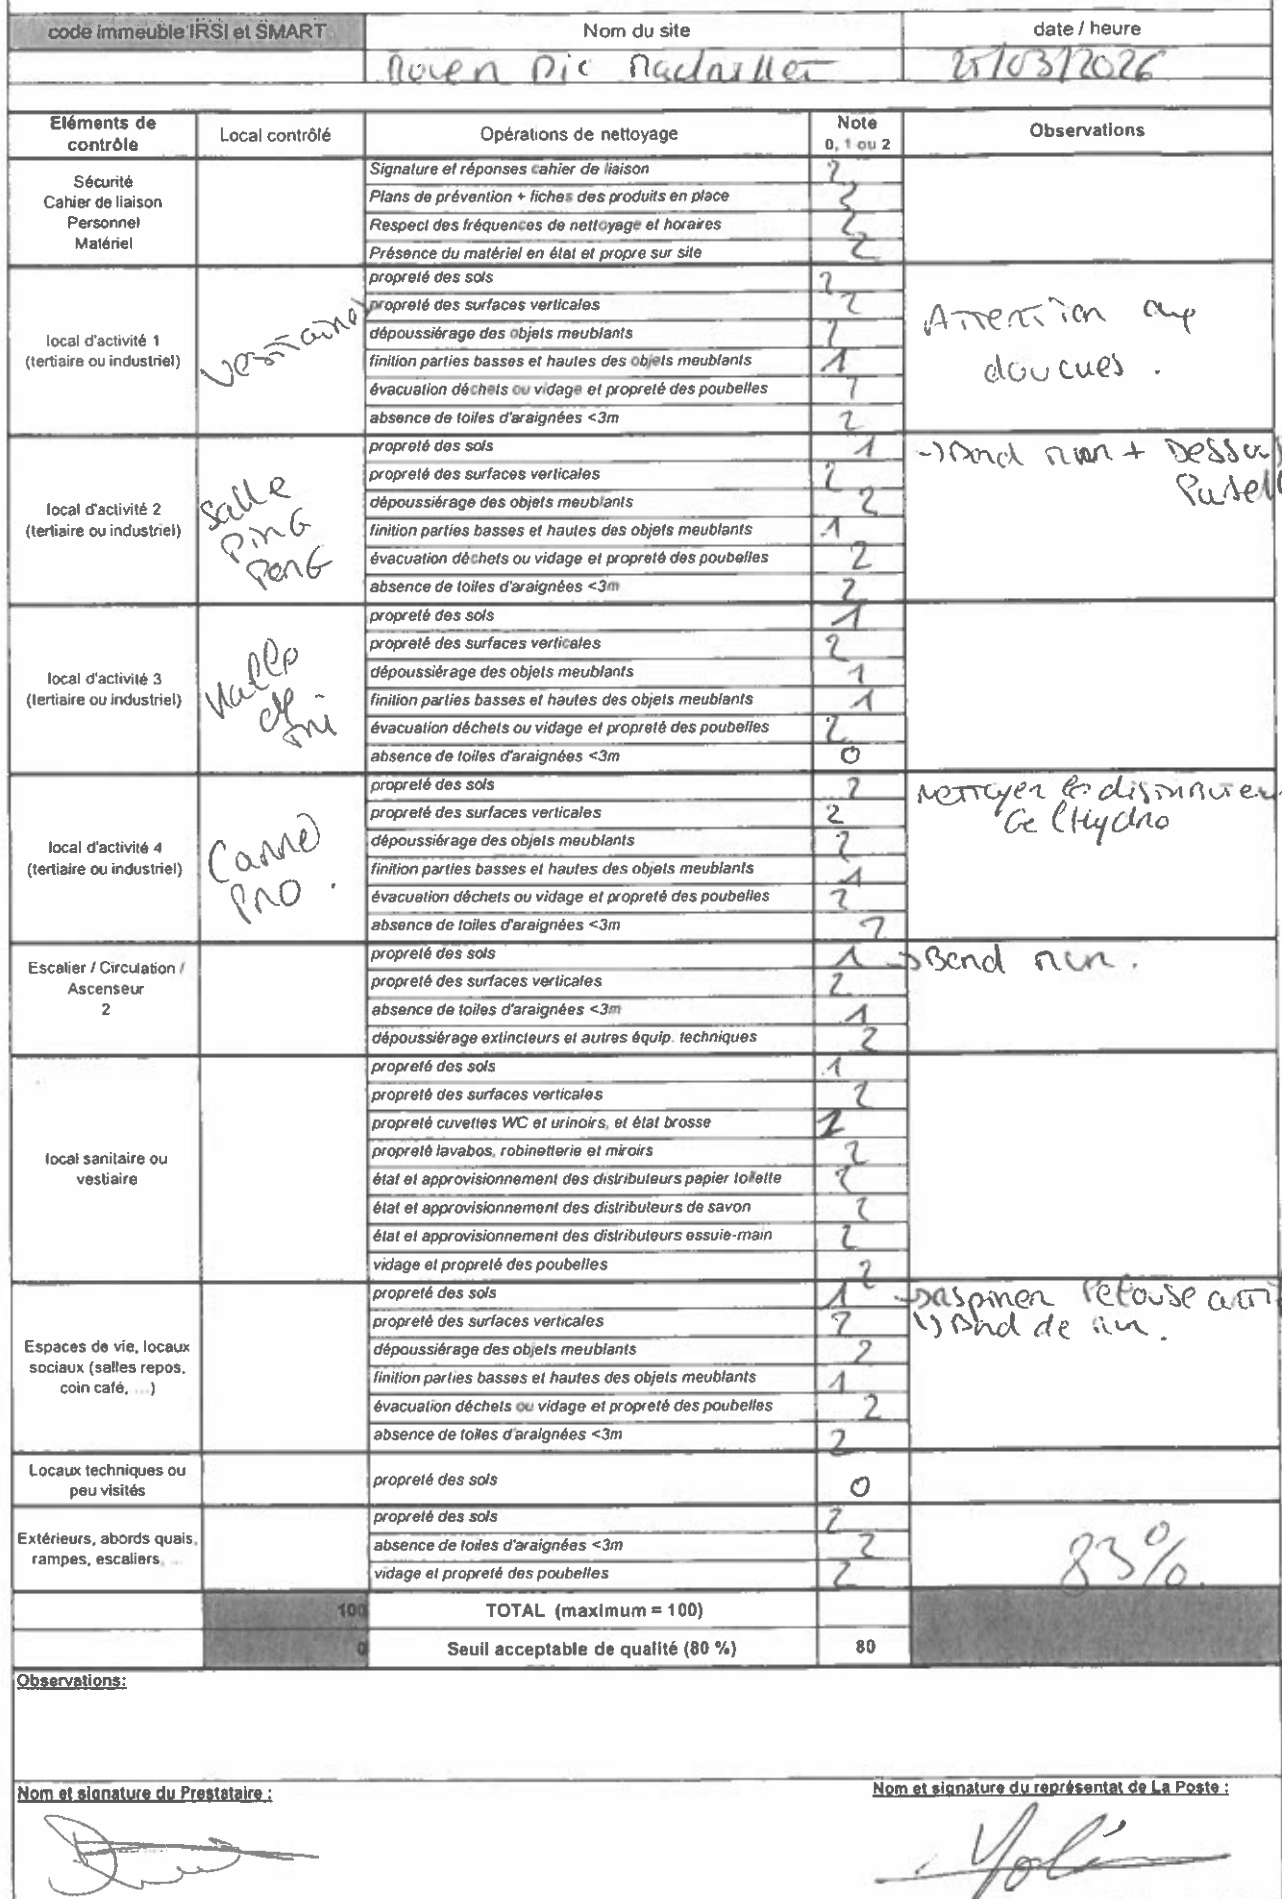 code immeuble IRSI et SMART Nom du site date / heure
Rouen Pic Madaillet 25/03/2026
Eléments de contrôle Local contrôlé Opérations de nettoyage Note 0, 1 ou 2 Observations
Sécurité
Cahier de liaison
Personnel
Matériel
Signature et réponses cahier de liaison 2
Plans de prévention + fiches des produits en place 2
Respect des fréquences de nettoyage et horaires 2
Présence du matériel en état et propre sur site 2
local d'activité 1
(tertiaire ou industriel)
Vestiaires
propreté des sols 2
propreté des surfaces verticales 2
dépoussiérage des objets meublants 2
finition parties basses et hautes des objets meublants 1
évacuation déchets ou vidage et propreté des poubelles
absence de toiles d'araignées <3m 2
Attention aux
douches.
local d'activité 2
(tertiaire ou industriel)
Salle
PING
PONG
propreté des sols 1
propreté des surfaces verticales 2
dépoussiérage des objets meublants 2
finition parties basses et hautes des objets meublants 1
évacuation déchets ou vidage et propreté des poubelles 2
absence de toiles d'araignées <3m 2
-> Bord mur + Dessus
local d'activité 3
(tertiaire ou industriel)
Halle
de
tri
propreté des sols 1
propreté des surfaces verticales 2
dépoussiérage des objets meublants 1
finition parties basses et hautes des objets meublants 1
évacuation déchets ou vidage et propreté des poubelles 2
absence de toiles d'araignées <3m 0
local d'activité 4
(tertiaire ou industriel)
Carré
PRO.
propreté des sols 2
propreté des surfaces verticales 2
dépoussiérage des objets meublants 2
finition parties basses et hautes des objets meublants 1
évacuation déchets ou vidage et propreté des poubelles 2
absence de toiles d'araignées <3m 2
Nettoyer le distributeur
Gel Hydro
Escalier / Circulation /
Ascenseur
2
propreté des sols 1
propreté des surfaces verticales 2
absence de toiles d'araignées <3m 1
dépoussiérage extincteurs et autres équip. techniques 2
-> Bord mur.
local sanitaire ou
vestiaire
propreté des sols 1
propreté des surfaces verticales 2
propreté cuvettes WC et urinoirs, et état brosse
propreté lavabos, robinetterie et miroirs 2
état et approvisionnement des distributeurs papier toilette 2
état et approvisionnement des distributeurs de savon 2
état et approvisionnement des distributeurs essuie-main 2
vidage et propreté des poubelles 2
Espaces de vie, locaux
sociaux (salles repos,
coin café, ...)
propreté des sols 1
propreté des surfaces verticales 2
dépoussiérage des objets meublants 2
finition parties basses et hautes des objets meublants 1
évacuation déchets ou vidage et propreté des poubelles 2
absence de toiles d'araignées <3m 2
-> aspirer Pelouse
-> Bord de mur.
Locaux techniques ou
peu visités
propreté des sols 0
Extérieurs, abords quais,
rampes, escaliers, ...
propreté des sols 2
absence de toiles d'araignées <3m 2
vidage et propreté des poubelles 2
83%.
100 TOTAL (maximum = 100)
0 Seuil acceptable de qualité (80 %) 80
Observations:
Nom et signature du Prestataire : Nom et signature du représentat de La Poste :